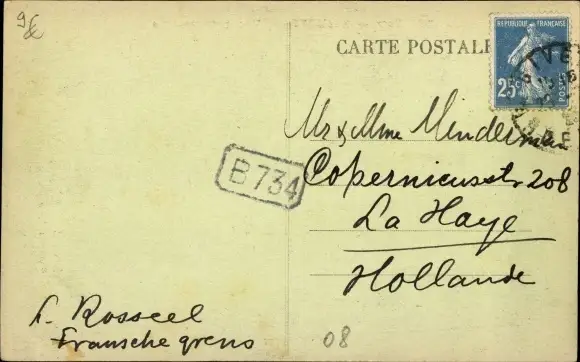 9
CARTE POSTALE
REPUBLIQUE FRANÇAISE
25c
POSTES
IVE
Mr & Mme Minderman
B734
Copernicusstr 208
La Haye
Hollande
Rosseel
Fransche grens
08